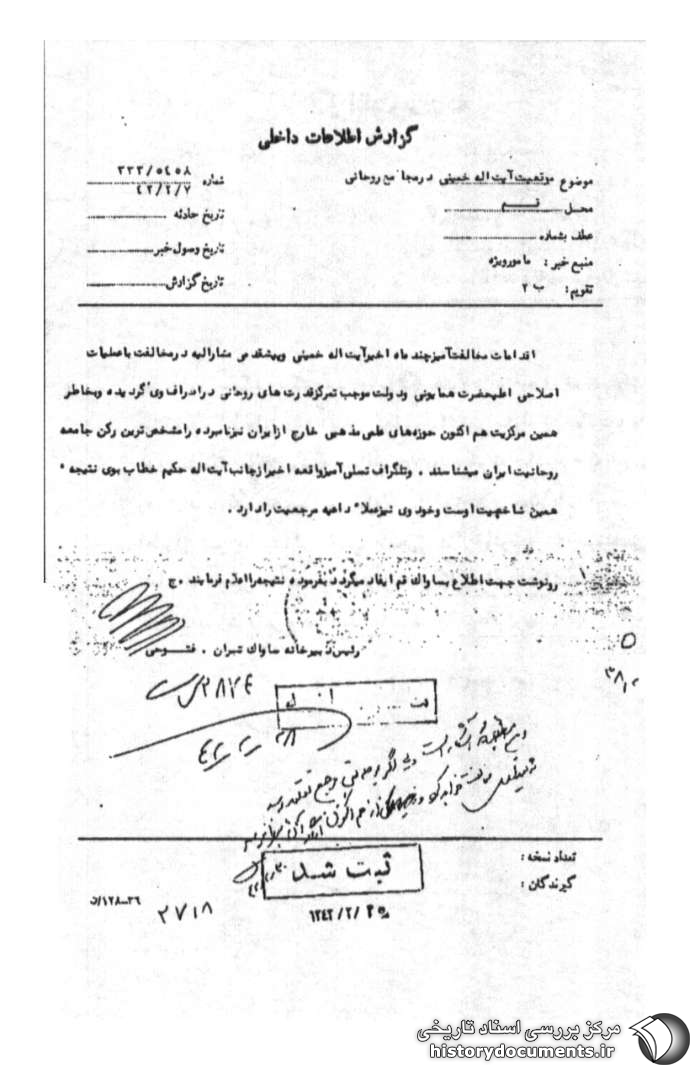 گزارش اطلاعات داخلی
موضوع موقعیت آیت اله خمینی درمجامع روحانی
محل قم
عطف بشماره
منبع خبر : مامورویژه
تقویم : ب ۲
شماره ۳۳۳/۵۴۵۸
۴۲/۲/۷
تاریخ حادثه
تاریخ وصول خبر
تاریخ گزارش
اقدامات مخالفت‌آمیز چند ماه اخیر آیت اله خمینی وپیشقدمی مشارالیه درمخالفت باعملیات
اصلاحی اعلیحضرت همایونی ودولت موجب تمرکزقدرت های روحانی دراطراف وی گردیده وبخاطر
همین مرکزیت هم اکنون حوزه‌های علمی مذهبی خارج ازایران نیزنامبرده رامشخص ترین رکن جامعه
روحانیت ایران میشناسند . وتلگراف تسلی آمیزواقعه اخیرازجانب آیت اله حکیم خطاب بوی نتیجه
همین شاخصیت اوست وخود وی نیزعملا داعیه مرجعیت رادارد .
رونوشت جهت اطلاع بساواک قم ایفاد میگردد بفرموده نتیجه‌رااعلام فرمایند . ج
رئیس دبیرخانه ساواک تهران . فتوحی
۲۸۷۴
۲۸
۴۲
ثبت شد
۱۳۴۲/۲/
تعداد نسخه :
گیرندگان :
۳۶-۱۲۸/ن
۲۷۱۸
مرکز بررسی اسناد تاریخی
historydocuments.ir